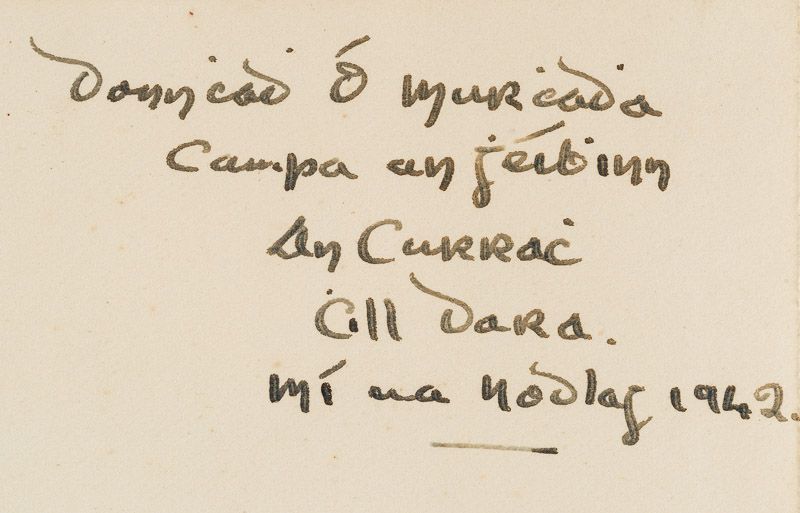 Donnċad Ó Murċada
Campa an ġéibinn
An Curraċ
Ċill Dara.
Mí na Nodlag 1942.